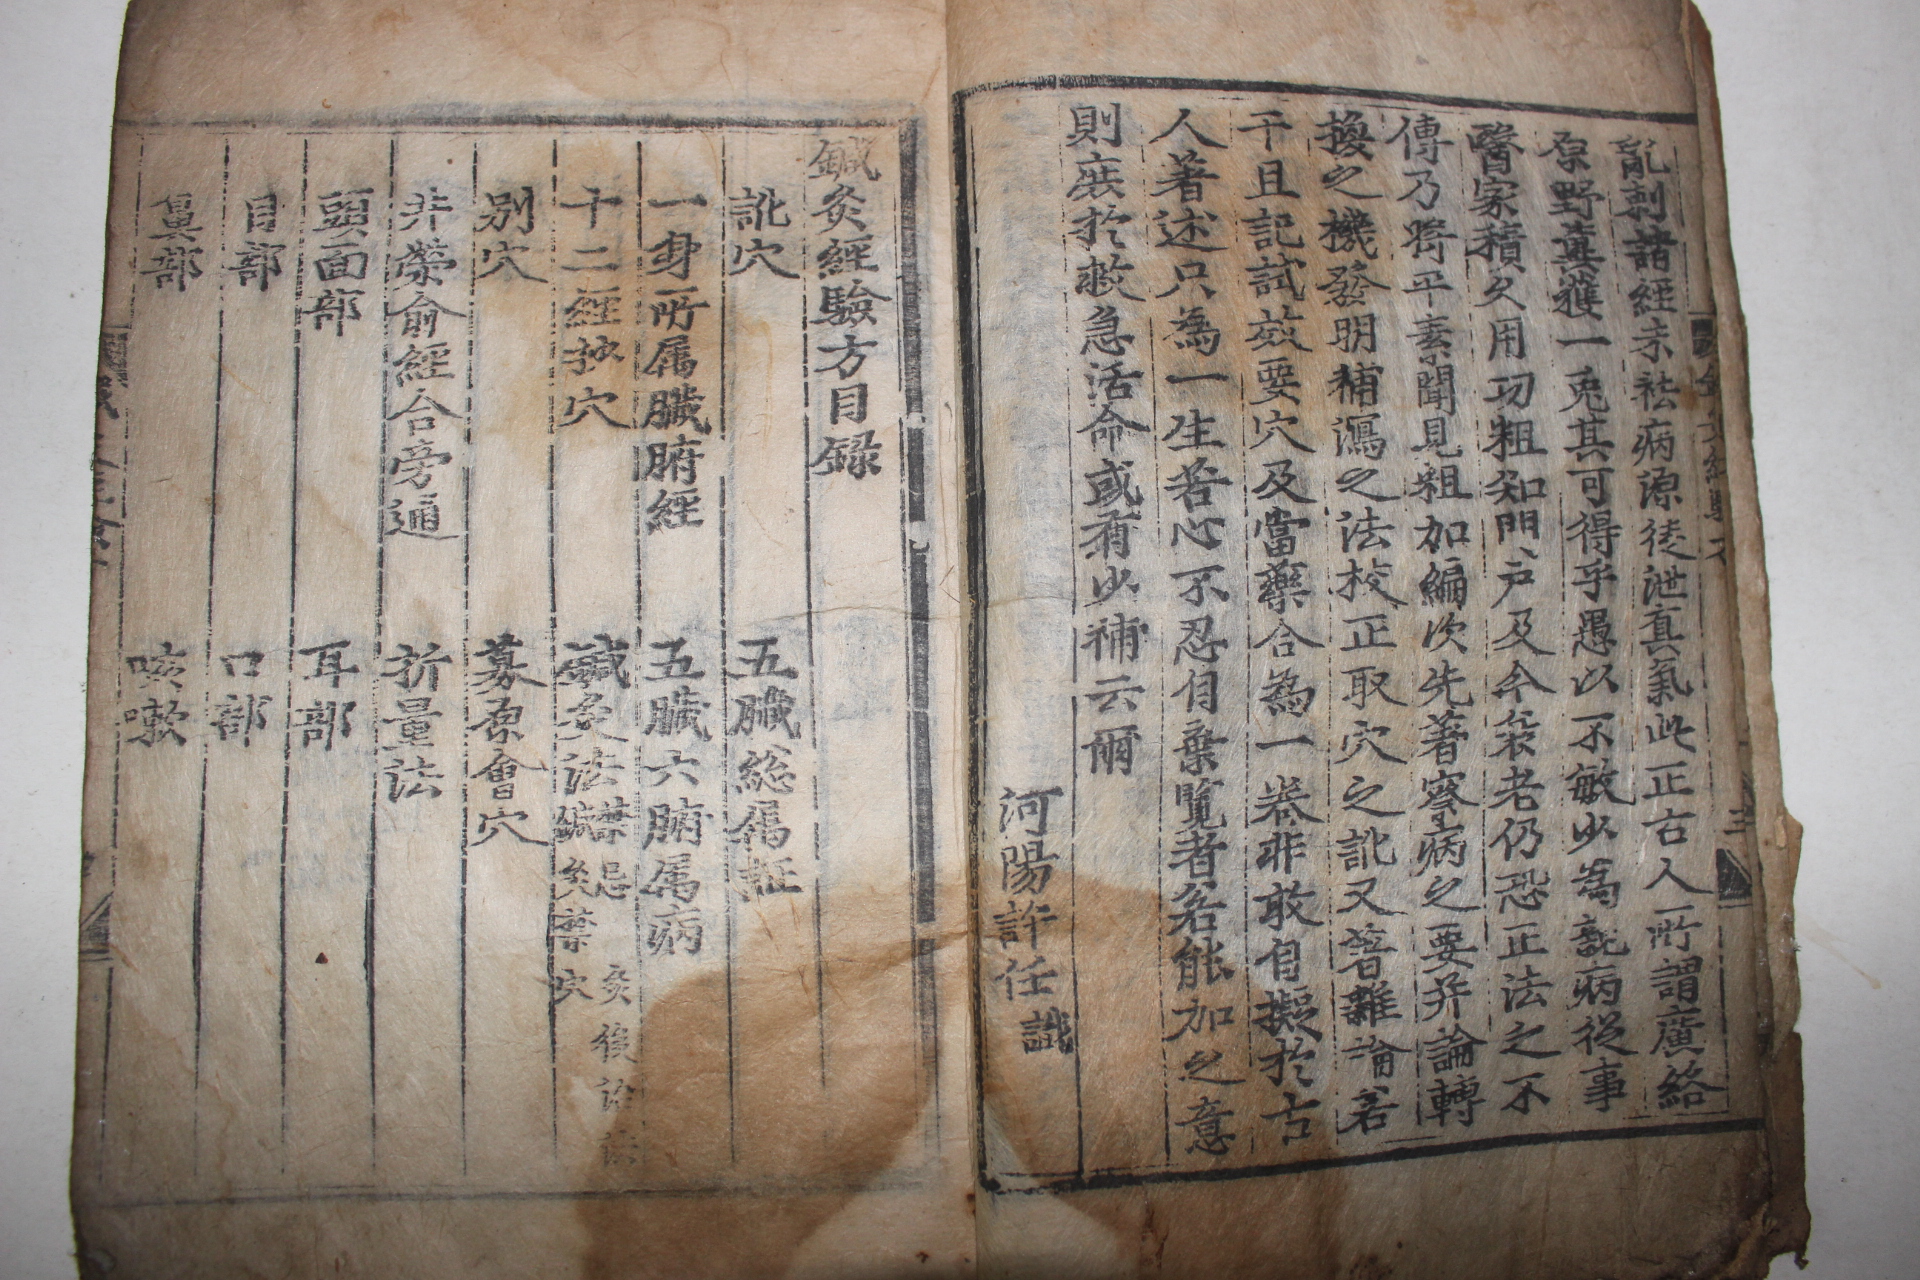 亂刺諸經未祛病源徒泄真氣此正古人所謂廣絡
原野冀獲一兎其可得乎愚以不敏少爲親病從事
醫家積久用功粗知門戶及今衰老仍恐正法之不
傳乃將平素聞見粗加編次先著察病之要并論轉
換之機發明補瀉之法校正取穴之訛又著雜論若
干且記試效要穴及當藥合為一卷非敢自擬於古
人著述只為一生苦心不忍自棄覽者若能加之意
則庶於救急活命或有少補云爾
河陽許任識
鍼灸經驗方目録
訛穴 五臟総属証
一身所属臟腑經 五臟六腑属病
十二經抄穴 鍼灸法 禁忌 灸後治法 鍼灸禁穴
别穴 募原會穴
井榮俞經合旁通 折量法
頭面部 耳部
目部 口部
鼻部 咳嗽